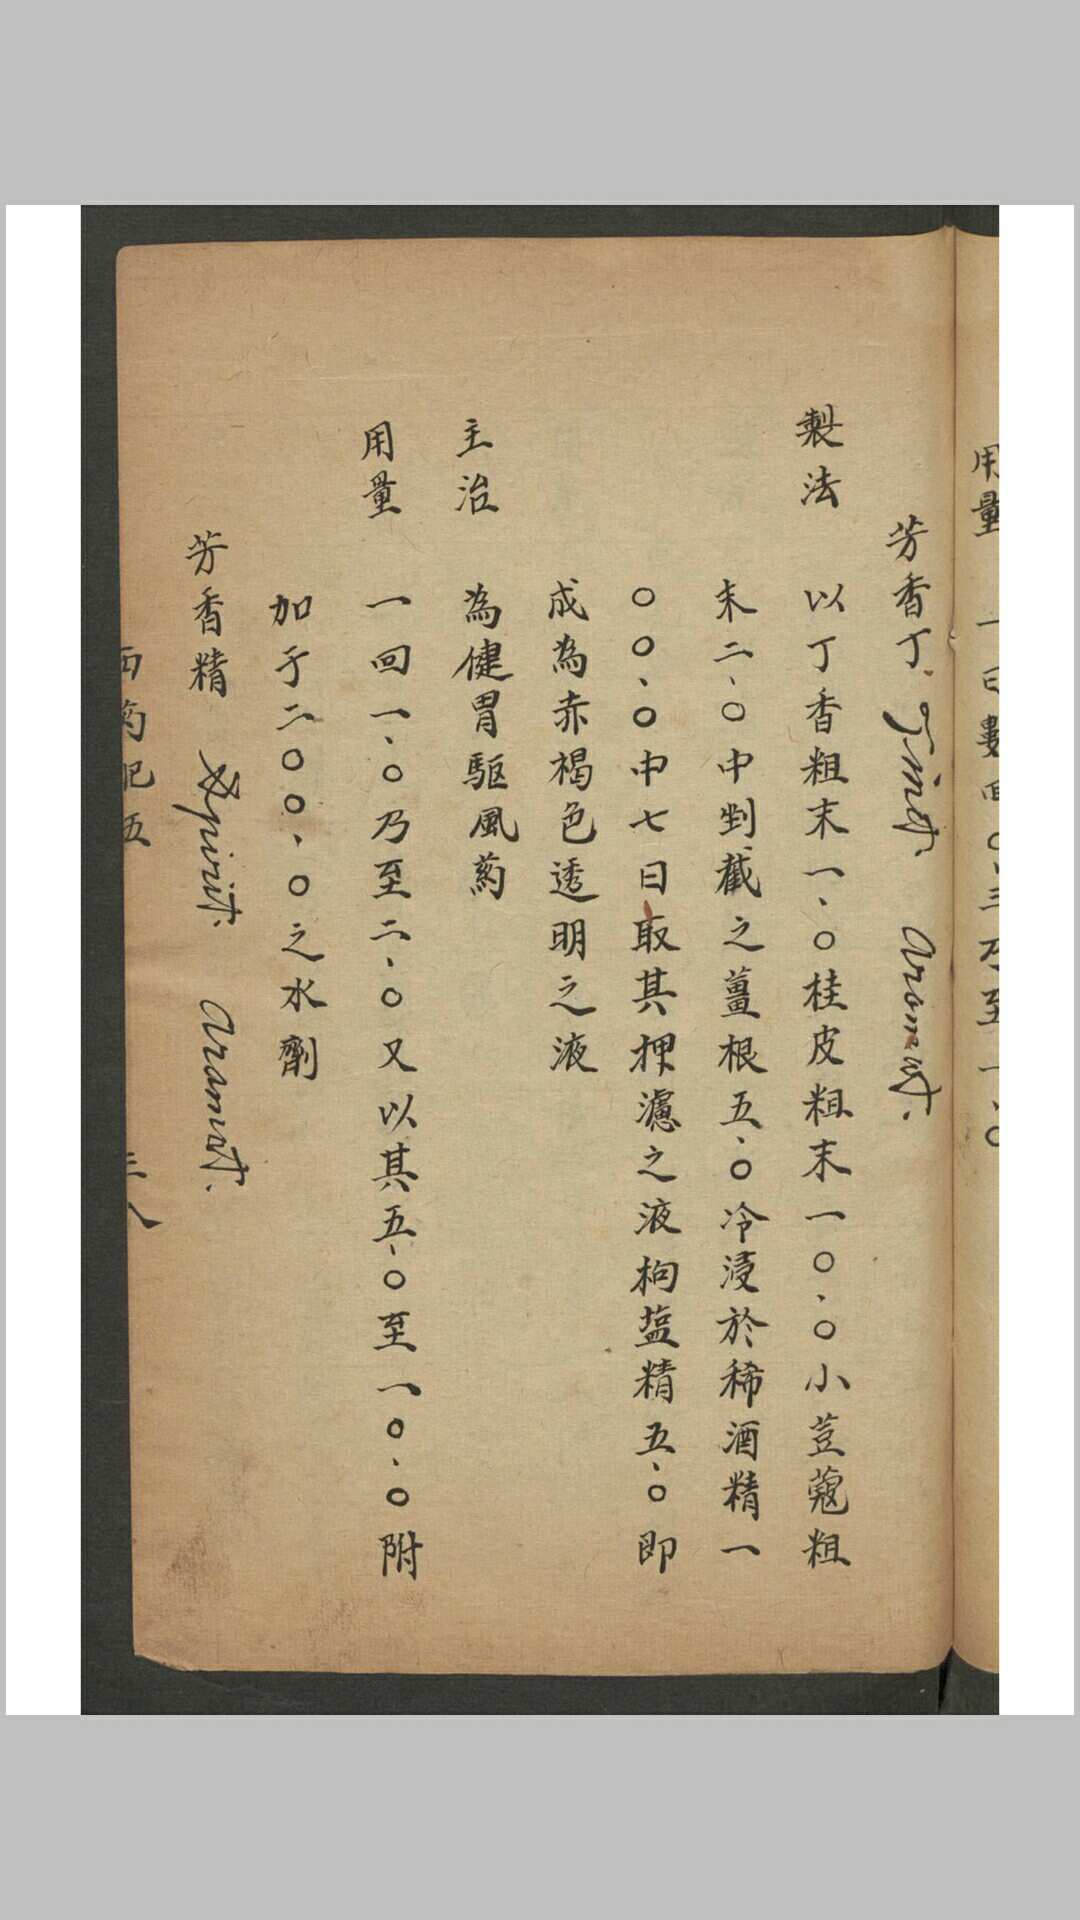 用量 一日數回〇、三乃至一、〇
芳香丁 Tinct. aromat.
製法 以丁香粗末一、〇桂皮粗末一〇、〇小荳蔻粗
末二、〇中剉截之薑根五、〇冷浸於稀酒精一
〇〇、〇中七日取其押濾之液枸盐精五、〇即
成為赤褐色透明之液
主治 為健胃驅風药
用量 一回一、〇乃至二、〇又以其五、〇至一〇、〇附
加于二〇〇、〇之水劑
芳香精 Spirit. aramat.
西药肥五 三八